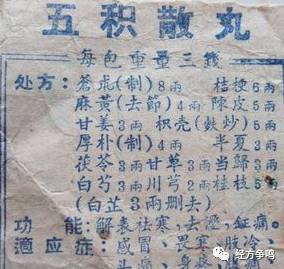 五积散丸
每包重量三錢
处方：蒼朮(制)8兩 桔梗6兩
麻黃(去節)4兩 陳皮5兩
甘姜3兩 枳壳(麩炒)5兩
厚朴(制)4兩 半夏3兩
茯苓3兩 甘草3兩 当歸3兩
白芍3兩 川芎2兩 桂枝5兩
(白芷3兩删去)
功能：解表祛寒，去濕，鉦痛。
適应症：感冒、畏寒、肢冷、
经方争鸣